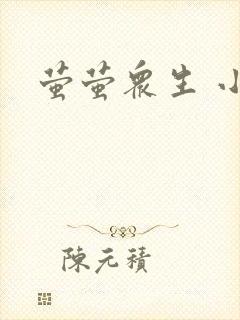 萤萤众生 小
陈元積